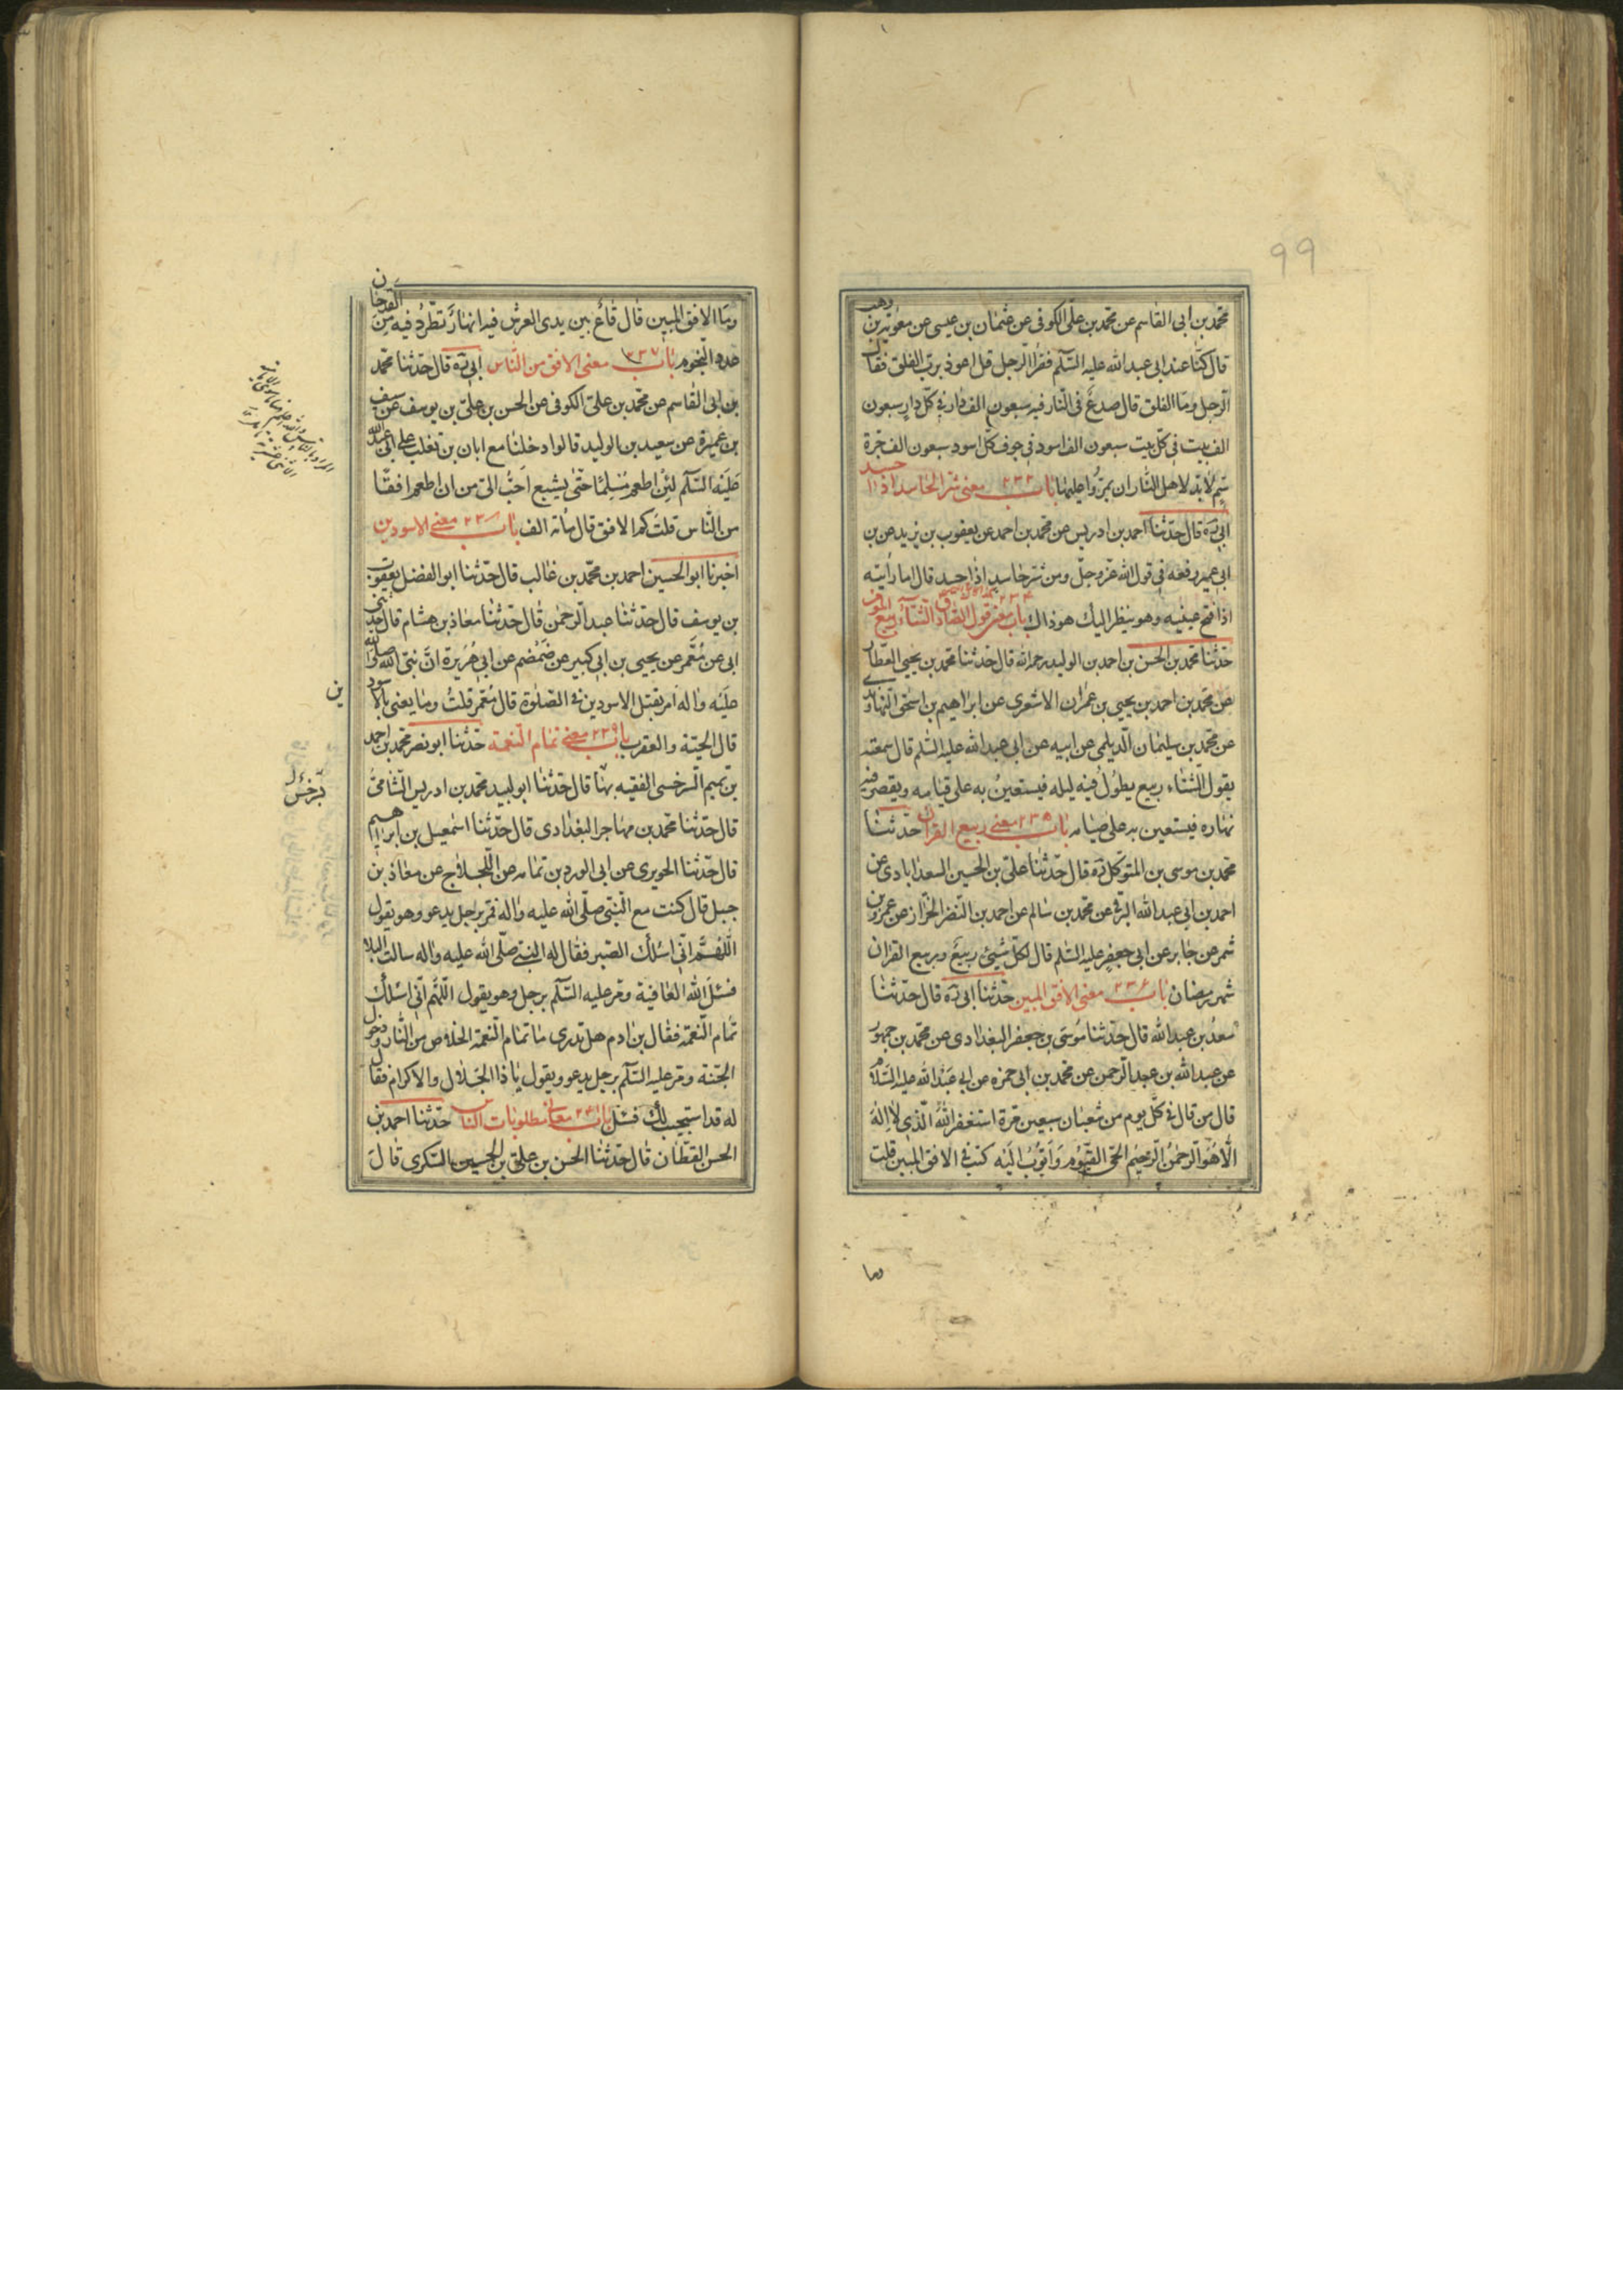 99
محمد بن ابی القاسم عن محمد بن علی الکوفی عن عثمان بن عیسی عن معویة بن وهب
قال کنا عند ابی عبد الله علیه السلم فقرأ الرجل قل اعوذ برب الفلق فقال
الرجل وما الفلق قال صدع فی النار فیه سبعون الف دار فی کل دار سبعون
الف بیت فی کل بیت سبعون الف اسود فی جوف کل اسود سبعون الف جرة
سم لابد لاهل النار ان یمروا علیها باب ۲۳۳ معنی شر الحاسد اذا حسد
ابی ره قال حدثنا احمد بن ادریس عن محمد بن احمد عن یعقوب بن یزید عن بن
ابی عمیر رفعه فی قول الله عز وجل ومن شر حاسد اذا حسد قال اما رأیته
اذا فتح عینیه وهو ینظر الیک هو ذاک باب ۲۳۴ معنی قول الصادق الشتاء ربیع المؤمن
حدثنا محمد بن الحسن بن احمد بن الولید رحمه الله قال حدثنا محمد بن یحیی العطار
عن محمد بن احمد بن یحیی بن عمران الاشعری عن ابراهیم بن اسحق النهاوندی
عن محمد بن سلیمان الدیلمی عن ابیه عن ابی عبد الله علیه السلم قال سمعته
یقول الشتاء ربیع یطول فیه لیله فیستعین به علی قیامه ویقصر فیه
نهاره فیستعین به علی صیامه باب ۲۳۵ معنی ربیع القران حدثنا
محمد بن موسی بن المتوکل ره قال حدثنا علی بن الحسین السعدابادی عن
احمد بن ابی عبد الله البرقی عن محمد بن سالم عن احمد بن النضر الخزاز عن عمرو بن
شمر عن جابر عن ابی جعفر علیه السلم قال لکل شیئ ربیع وربیع القران
شهر رمضان باب ۲۳۶ معنی الافق المبین حدثنا ابی ره قال حدثنا
سعد بن عبد الله قال حدثنا موسی بن جعفر البغدادی عن محمد بن جمهور
عن عبد الله بن عبد الرحمن عن محمد بن ابی حمزه عن ابی عبد الله علیه السلام
قال من قال فی کل یوم من شعبان سبعین مرة استغفر الله الذی لا اله
الا هو الرحمن الرحیم الحی القیوم واتوب الیه کتب فی الافق المبین قلت
وما
وما الافق المبین قال قاع بین یدی العرش فیه انهار تطرد فیه من القدحان
عدد النجوم باب ۲۳۷ معنی الافق من الناس ابی ره قال حدثنا محمد
بن ابی القاسم عن محمد بن علی الکوفی عن الحسن بن علی بن یوسف عن سیف
بن عمیرة عن سعید بن الولید قالوا دخلنا مع ابان بن تغلب علی ابی عبد الله
علیه السلم لئن اطعم مسلما حتی یشبع احب الی من ان اطعم افقا
من الناس قلت کم الافق قال مأة الف باب ۲۳۸ معنی الاسودین
اخبرنا ابو الحسین احمد بن محمد بن غالب قال حدثنا ابو الفضل یعقوب
بن یوسف قال حدثنا عبد الرحمن قال حدثنا معاذ بن هشام قال حدثنی
ابی عن معمر عن یحیی بن ابی کبیر عن ضمضم عن ابی هریرة ان نبی الله صلی الله
علیه واله امر بقتل الاسودین فی الصلوة قال معمر قلت وما یعنی بالاسود
ین
قال الحیة والعقرب باب ۲۳۹ معنی تمام النعمة حدثنا ابو نصر محمد بن احمد
بن تمیم السرخسی الفقیه بها قال حدثنا ابو لبید محمد بن ادریس الشامی
قال حدثنا محمد بن مهاجر البغدادی قال حدثنا اسمعیل بن ابراهیم
قال حدثنا الحویری عن ابی الورد بن تمامه عن اللجلاج عن معاذ بن
جبل قال کنت مع النبی صلی الله علیه واله فمر برجل یدعو وهو یقول
اللهم انی اسئلک الصبر فقال له النبی صلی الله علیه واله سالت البلا
فسئل الله العافیة ومر علیه السلم برجل وهو یقول اللهم انی اسئلک
تمام النعمة فقال بن ادم هل تدری ما تمام النعمة الخلاص من النار ودخول
الجنة ومر علیه السلم برجل یدعو ویقول یا ذا الجلال والاکرام فقال
له قد استجیب لک فسئل باب ۲۴۰ معنی مطلوبات الناس حدثنا احمد بن
الحسن القطان قال حدثنا الحسن بن علی بن الحسین السکری قال